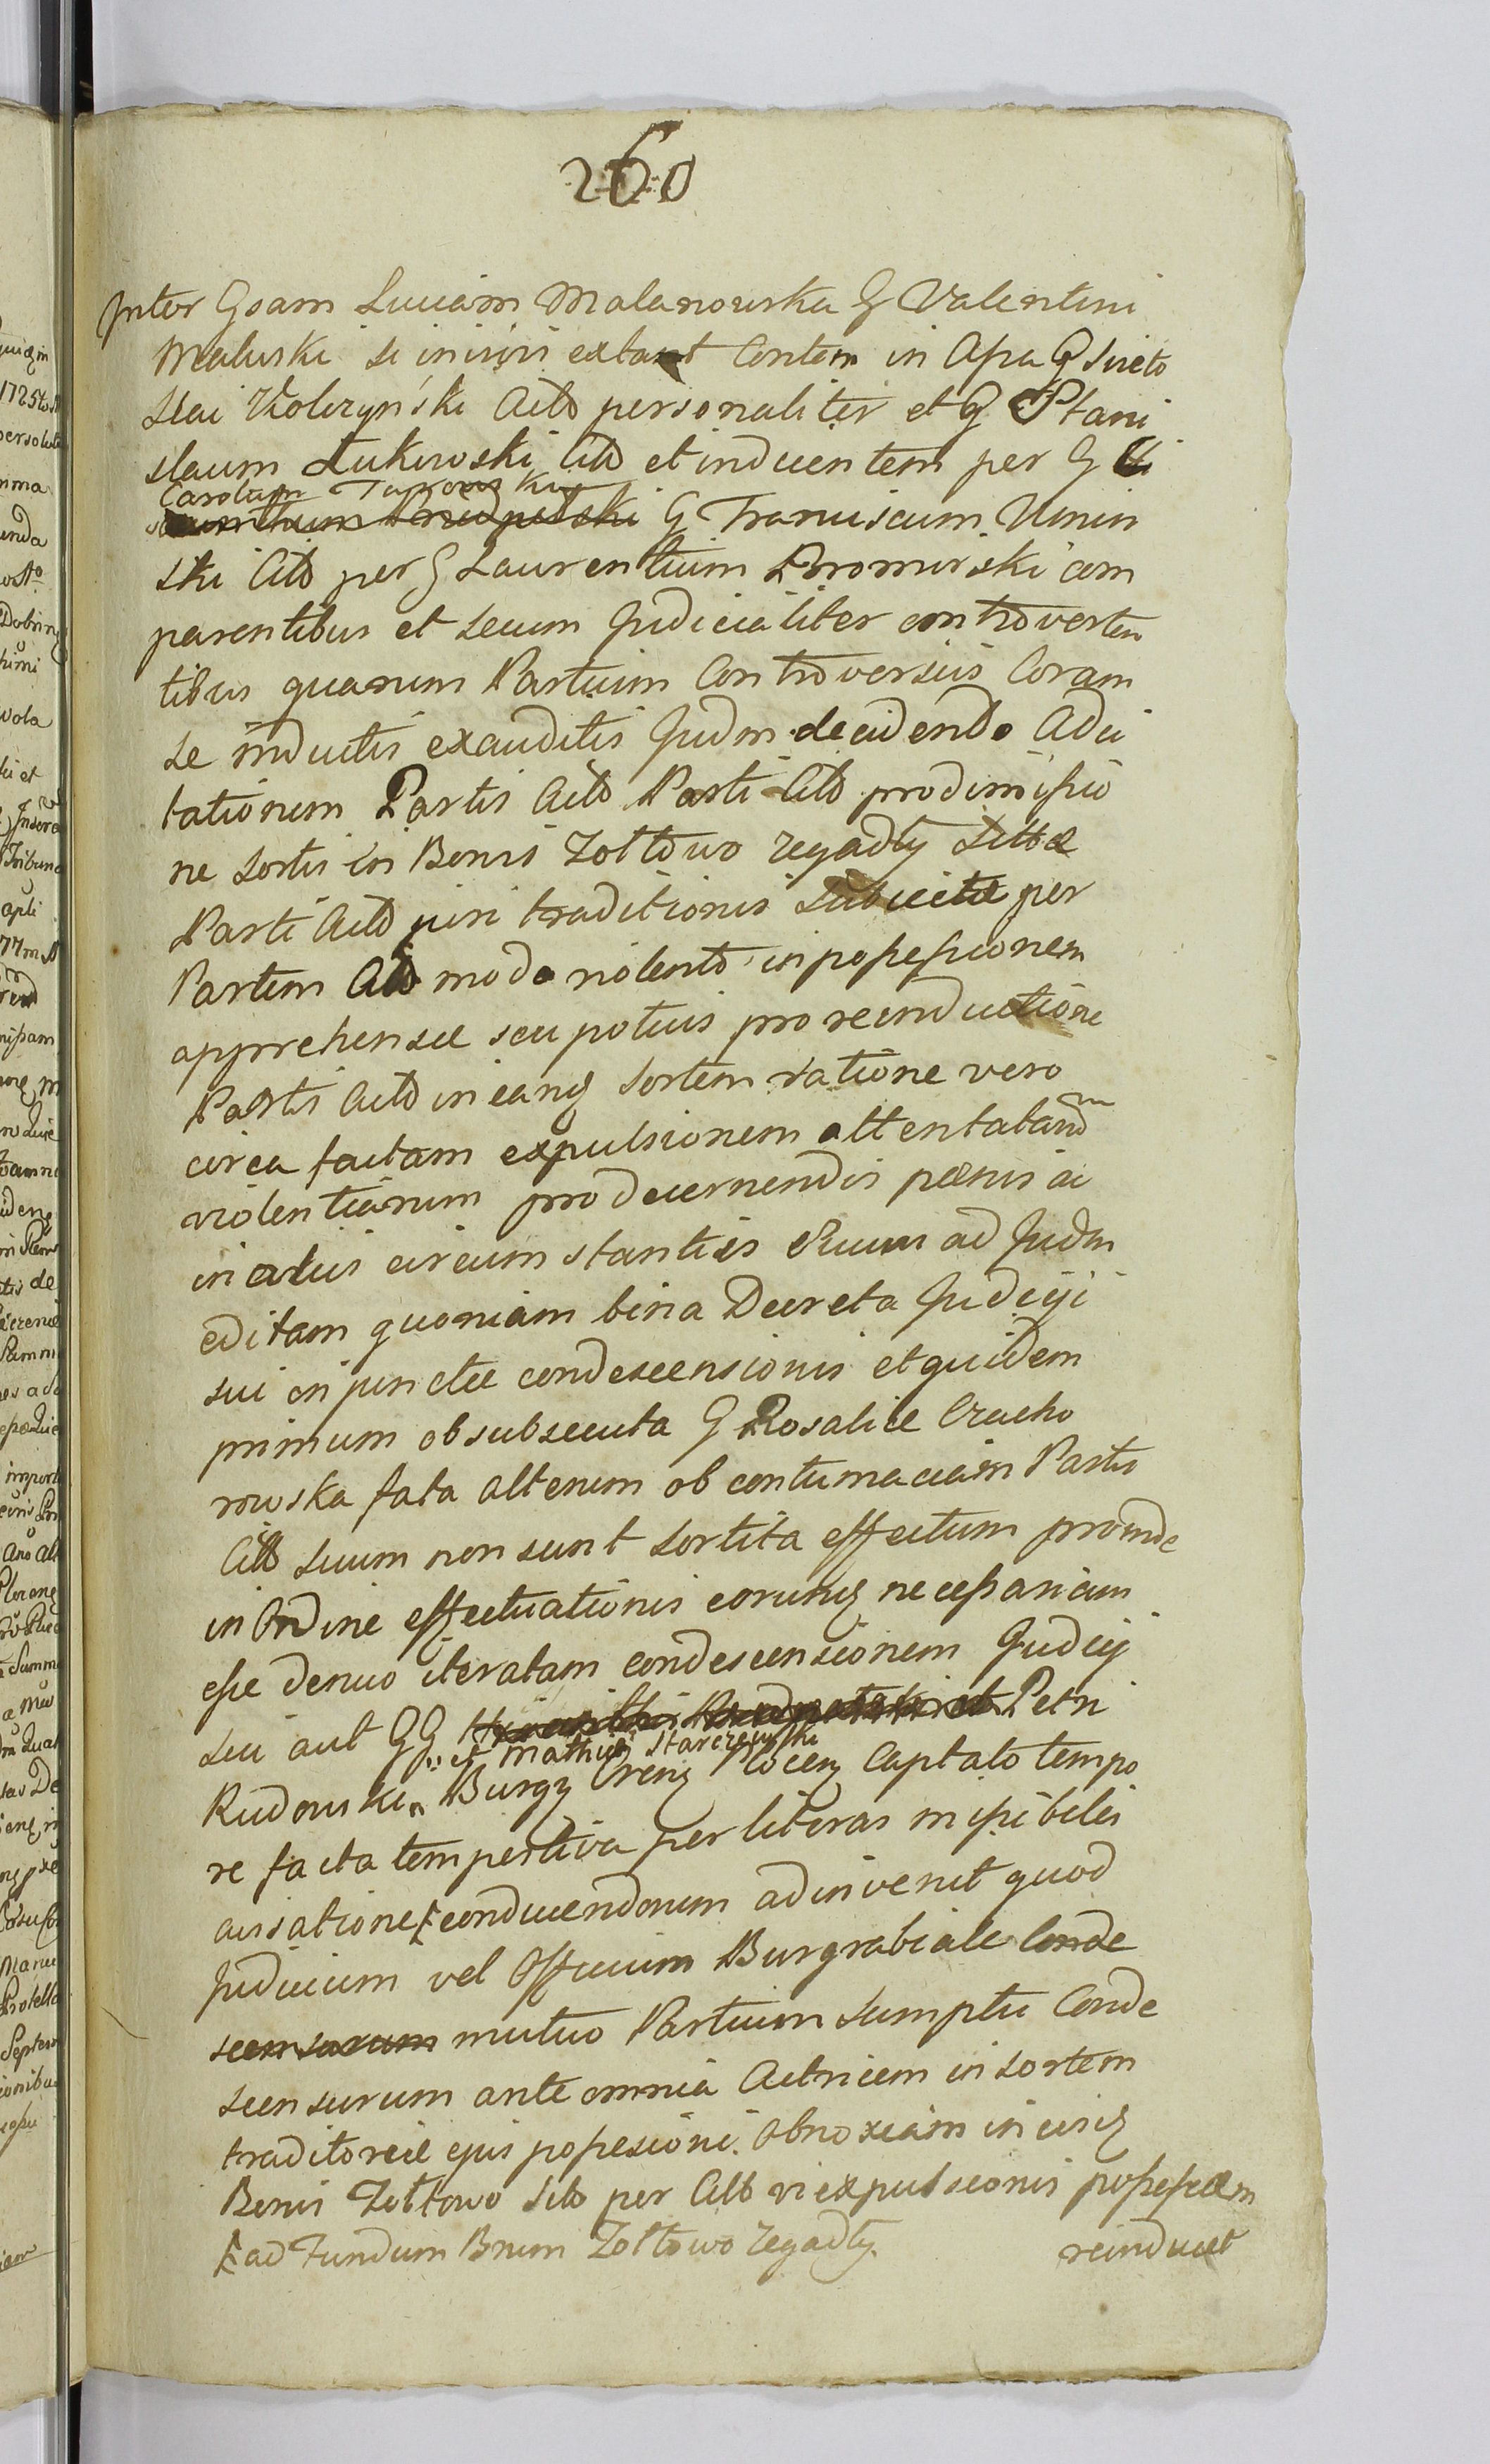 260
Inter Gsam Luciam Malanowska G Valentini
Maluski si in iuri extant Conten in Assa G Sueto
slai Kolczyński Actō personaliter et G Stani
slaum Łukowski Citō et inducentem per G
Carolum
G Franciscum Umin
ski Citō per G Laurentium Bromirski com
parentibus et secum Judicialiter controverten
tibus quarum Partium Controversiis Coram
se inductis exauditis Judm decidendo Adci
tationem Partis Actō Parti Citō pro dimissio
ne sortis in Bonis Zołtowo Zegadły sittæ
Parti Actō juri traditionis subiectæ per
Partem Citō modo violento in possessionem
apprehensæ seu potius pro reinductione
Partis Actō in eanq sortem ratione vero
circa factam expulsionem attentatarū
violentiarum pro decernendis pænis ac
in aliis circumstantiis suum ad Judm
editam quoniam bina Decreta Judicij
sui injunctæ condescensionis et quidem
primum ob subsecuta G Rosaliæ Czacho
rowska fata alterum ob contumaciam Partis
Citō suum non sunt sortita effectum proinde
in Ordine effectuationis eorunq necessariam
esse denuo iteratam condescensionem Judicij
sui aut GG Petri
et Mathiæ Starczewski
Rudowski Burgz Crenz Plocen Captato tempo
re facta tempestiva per literas missibiles
avisatione conducendorum adinvenit quod
Judicium vel Officium Burgrabiale Conde
scensurum mutuo Partium sumptu Conde
scensurum ante omnia Actricem in sortem
traditoriæ ejus possesioni Obnoxiam in iisq
Bonis Zołtowo sitō per Citō vi expulsionis possessam
ad Fundum Bnrum Zołtowo Zegadły.
reinducet